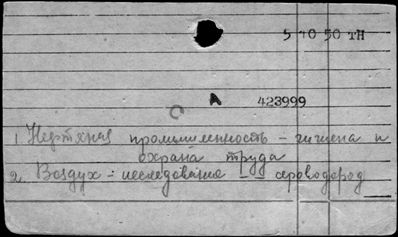 5 10 50 тн
А 423999
С
1. Нефтяная промышленность – гигиена и
охрана труда
2. Воздух – исследование – – сероводород